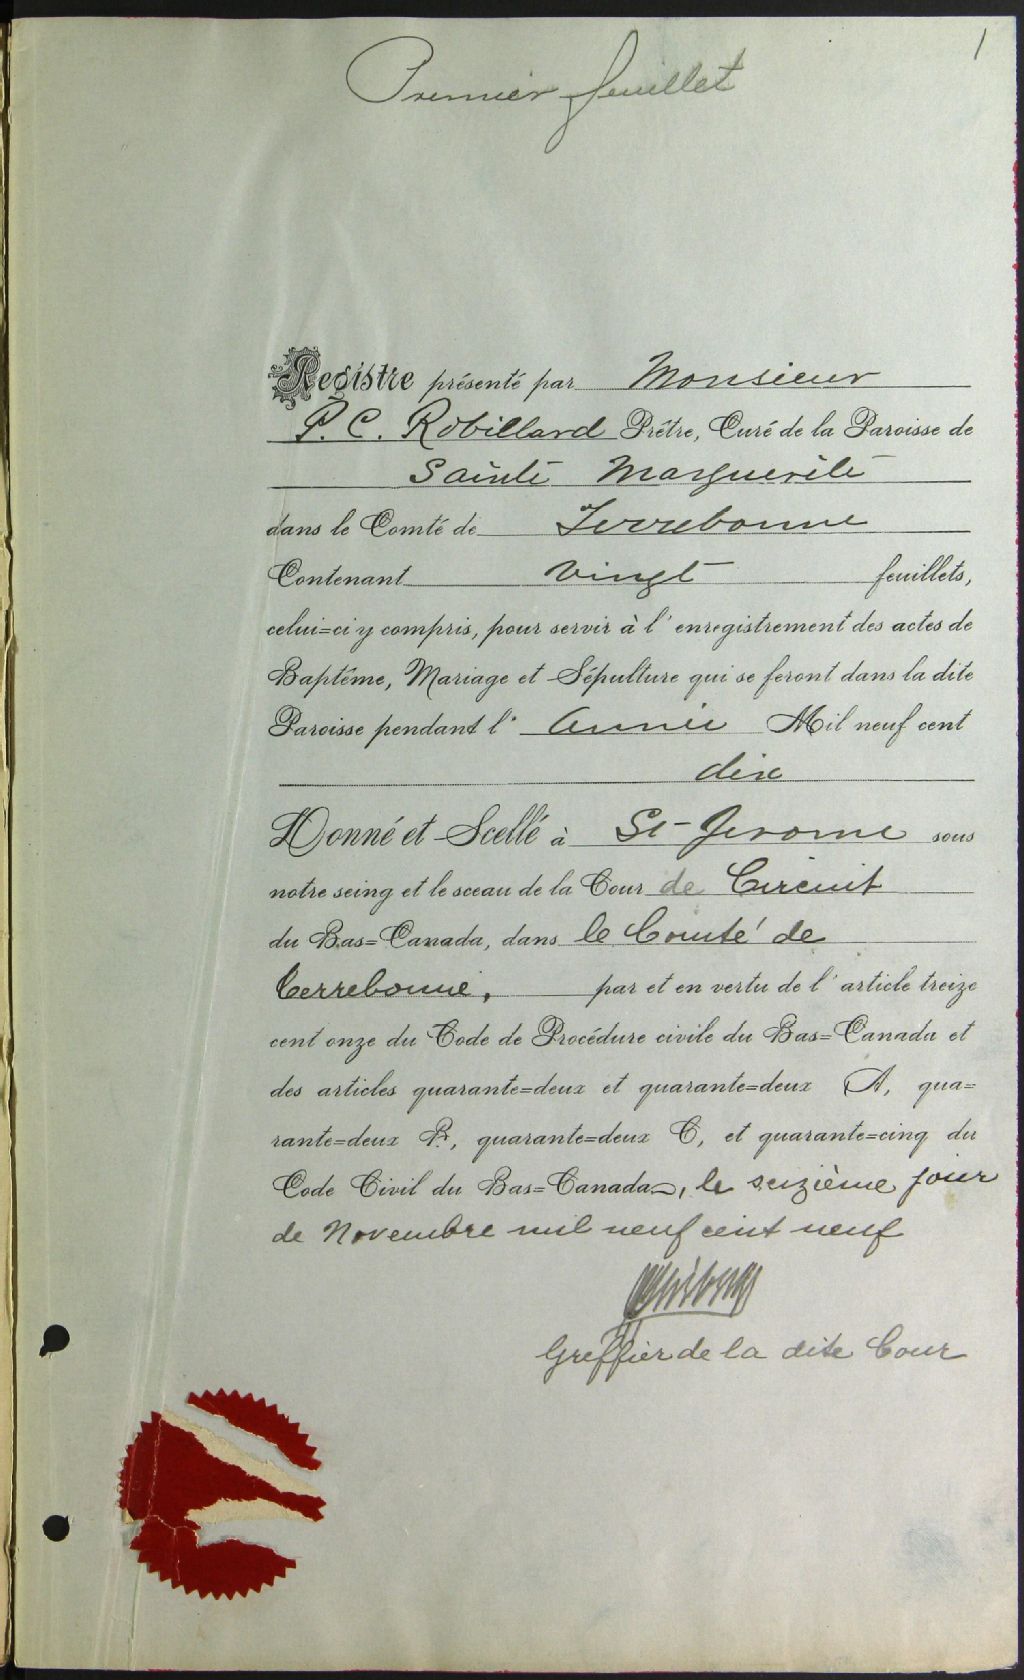 1
Premier feuillet
Registre présenté par Monsieur
P. C. Robillard Prêtre, Curé de la Paroisse de
Sainte Marguerite
dans le Comté de Terrebonne
Contenant vingt feuillets,
celui=ci y compris, pour servir à l'enregistrement des actes de
Baptême, Mariage et Sépulture qui se feront dans la dite
Paroisse pendant l'année Mil neuf cent
dix
Donné et Scellé à St-Jerome sous
notre seing et le sceau de la Cour de Circuit
du Bas=Canada, dans le Comté de
Terrebonne, par et en vertu de l'article treize
cent onze du Code de Procédure civile du Bas=Canada et
des articles quarante=deux et quarante=deux A, qua=
rante=deux B, quarante=deux C, et quarante=cinq du
Code Civil du Bas=Canada, le seizième jour
de Novembre mil neuf cent neuf
Greffier de la dite Cour